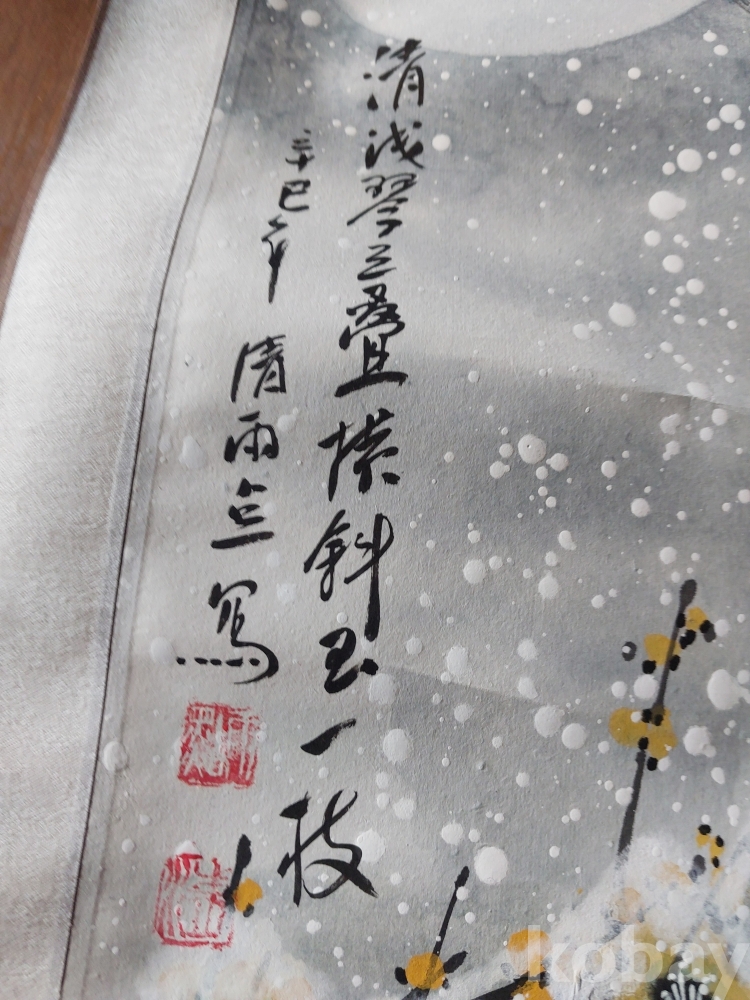 清浅琴三叠横斜玉一枝
辛巳年清雨立写
kobay